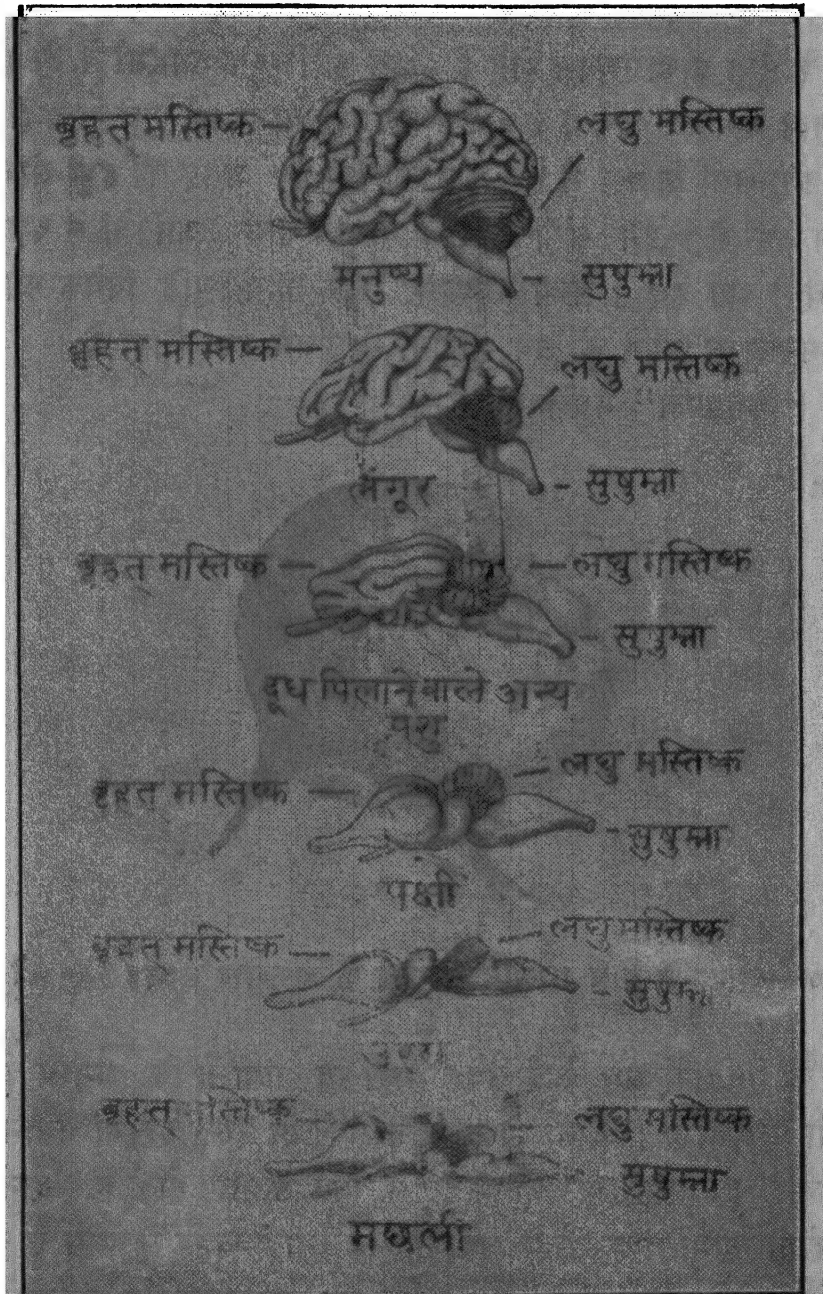 बृहत् मस्तिष्क
लघु मस्तिष्क
सुषुम्ना
मनुष्य
बृहत् मस्तिष्क
लघु मस्तिष्क
सुषुम्ना
लंगूर
बृहत् मस्तिष्क
लघु मस्तिष्क
सुषुम्ना
दूध पिलानेवाले अन्य
पशु
लघु मस्तिष्क
बृहत् मस्तिष्क
सुषुम्ना
पक्षी
लघु मस्तिष्क
बृहत् मस्तिष्क
सुषुम्ना
बृहत् मस्तिष्क
लघु मस्तिष्क
सुषुम्ना
मछली